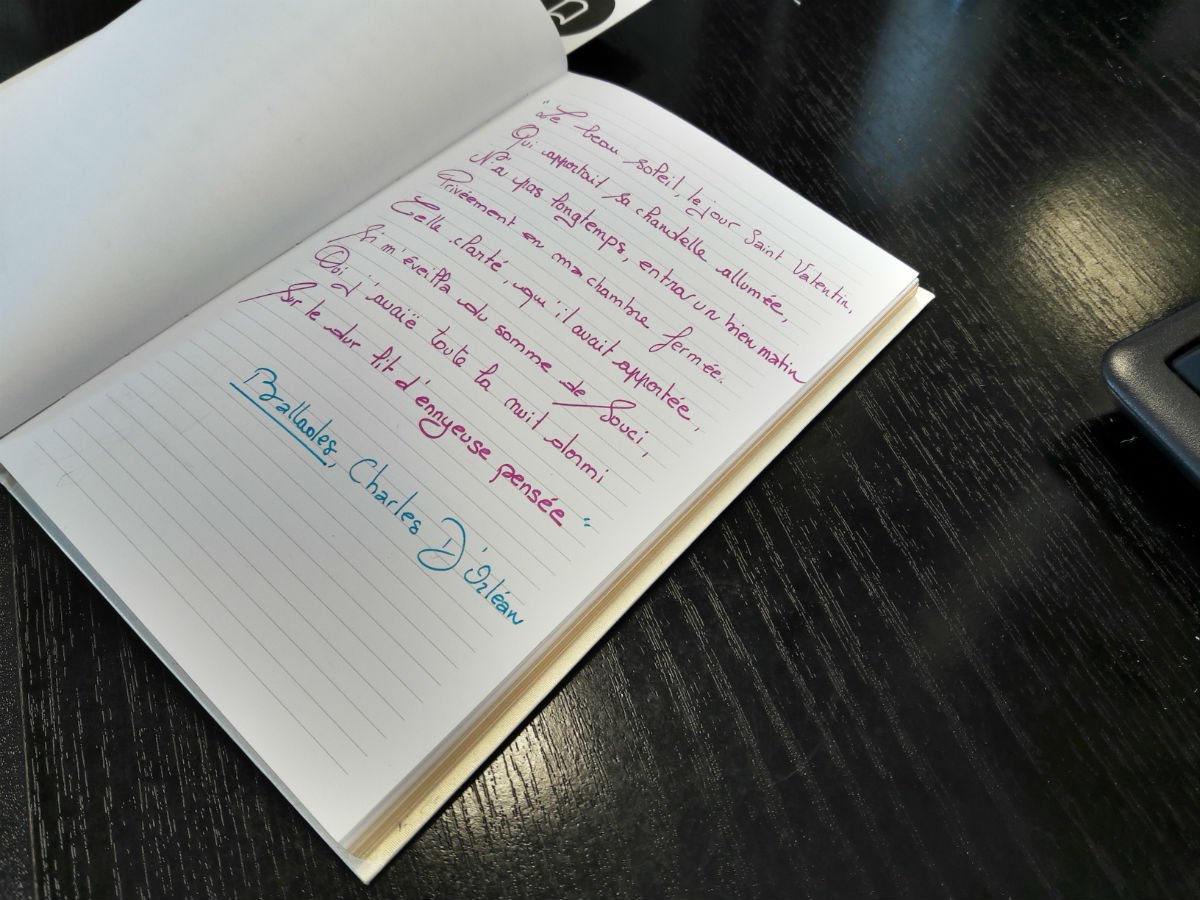 "Le beau soleil, le jour Saint Valentin,
Qui apportait sa chandelle allumée,
N'a pas longtemps, entrar un bien matin
Privéement en ma chambre fermée.
Celle clarté, qu'il avait apportée,
Si m'éveilla du somme de Souci,
Où j'avaië toute la nuit dormi
Sur le dur lit d'ennyeuse pensée"
Ballades, Charles D'Orléan